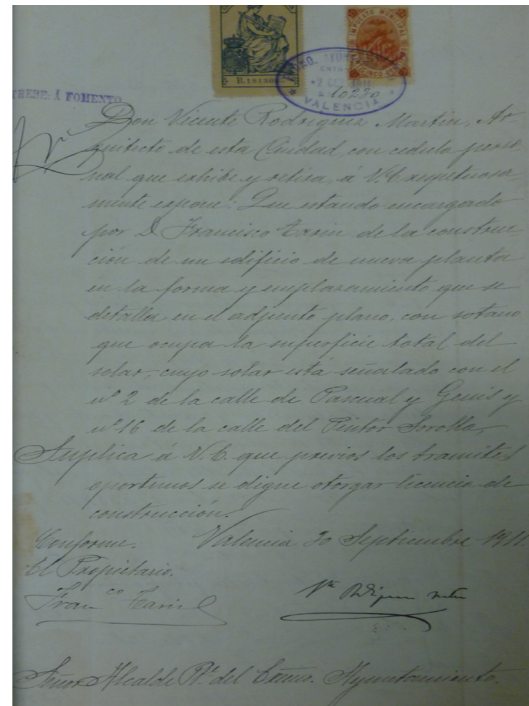 R.18120
REG. 
ENTRADA
2 OCT 1911
10220
VALENCIA
PASE: Á FOMENTO
Don Vicente Rodriguez Martin, Ar
quitecto de esta Ciudad con cedula perso
nal que exhibe y retira, á V.E. respetuosa
mente expone: Que estando encargado
por D. Francisco Tarin de la construc
ción de un edificio de nueva planta
en la forma y emplazamiento que se
detalla en el adjunto plano, con sotano
que ocupa la superficie total del
solar, cuyo solar está señalado con el
nº 2 de la calle de Pascual y Genis y
nº 16 de la calle del Pintor Sorolla,
Suplica á V.E. que previos los tramites
oportunos se digne otorgar licencia de
construcción.
Conforme. Valencia 30 Septiembre 1911
El Propietario.
Fran.co Tarin
Señor Alcalde Pte. del Excmo. Ayuntamiento.